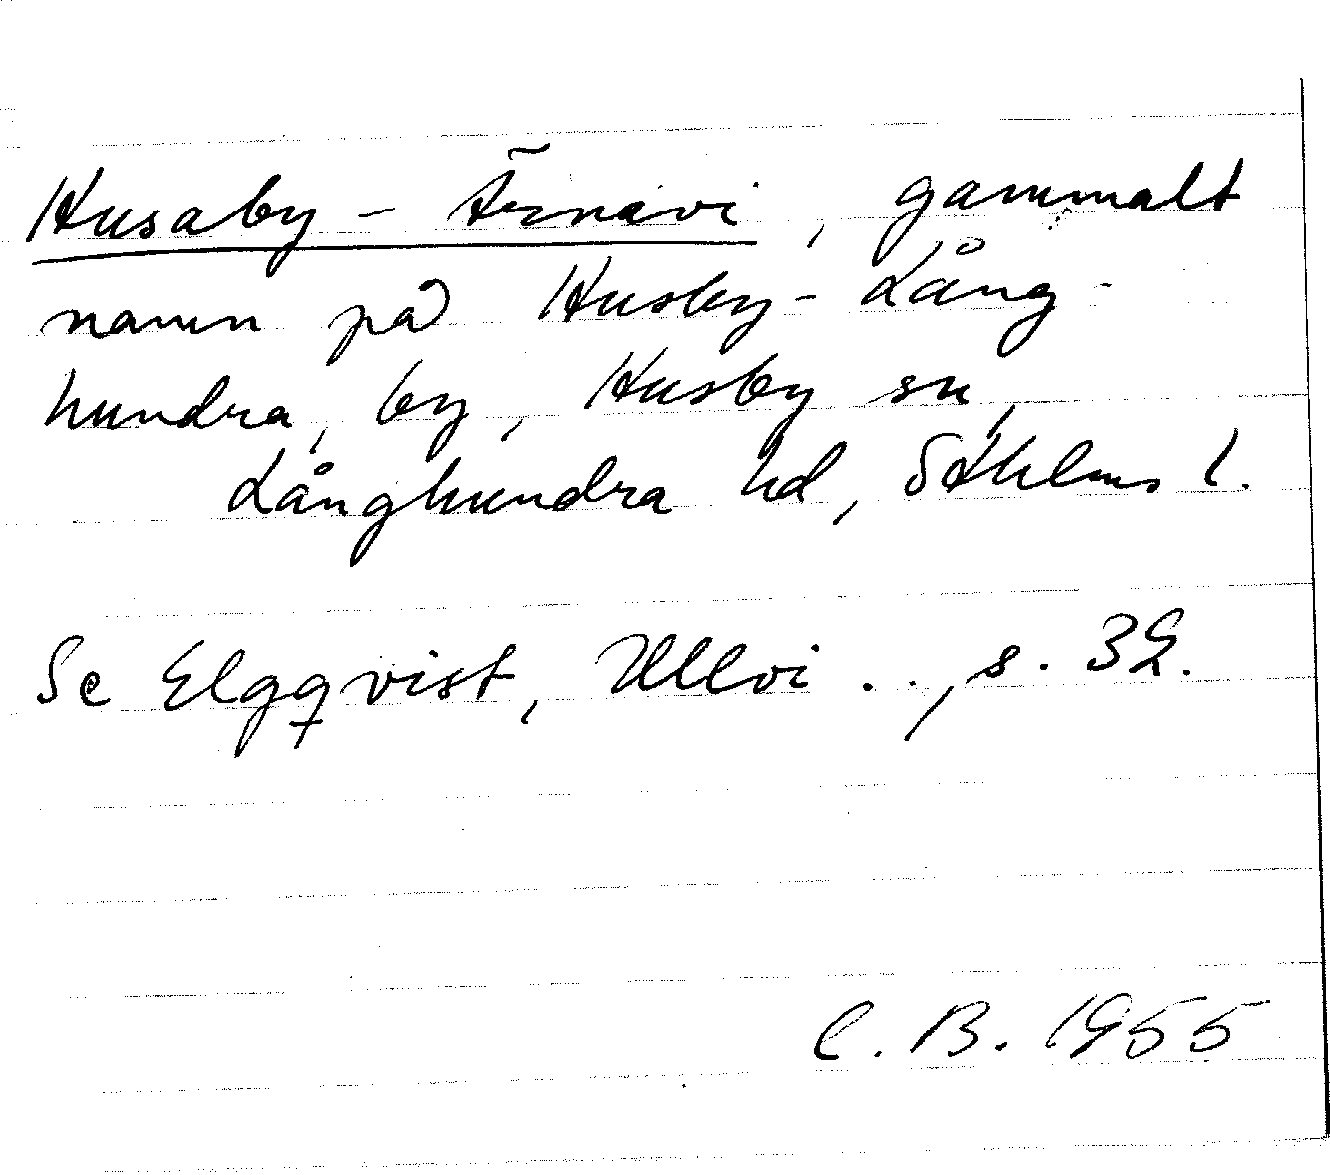 Husaby - Ärnavi, gammalt
namn på Husby - Lång-
hundra, by, Husby sn,
Långhundra hd, Sthlms l.
Se Elgqvist, Ullvi . ., s. 32.
C. B. 1955